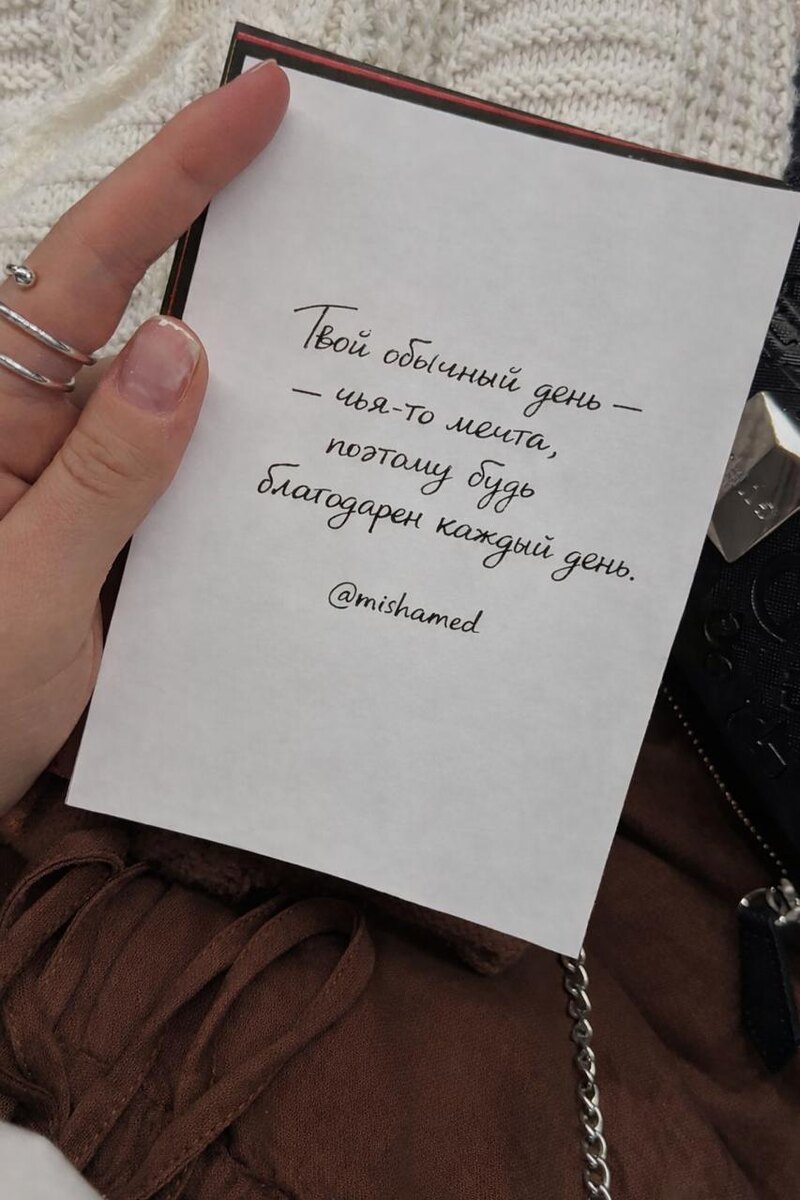 Твой обычный день —
— чья-то мечта,
поэтому будь
благодарен каждый день.
@mishamed